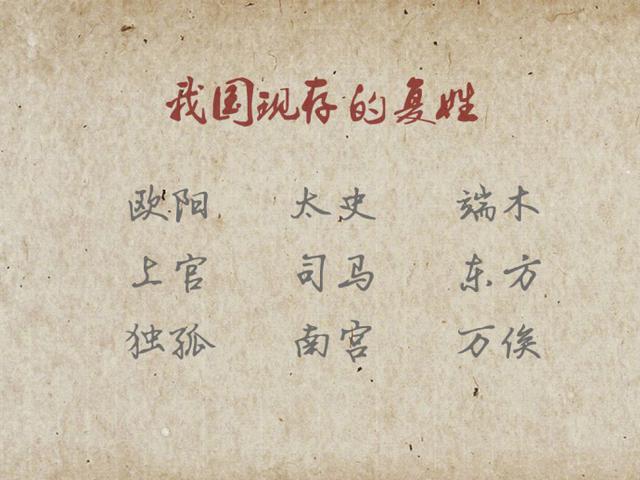 我国现存的复姓
欧阳 太史 端木
上官 司马 东方
独孤 南宫 万俟